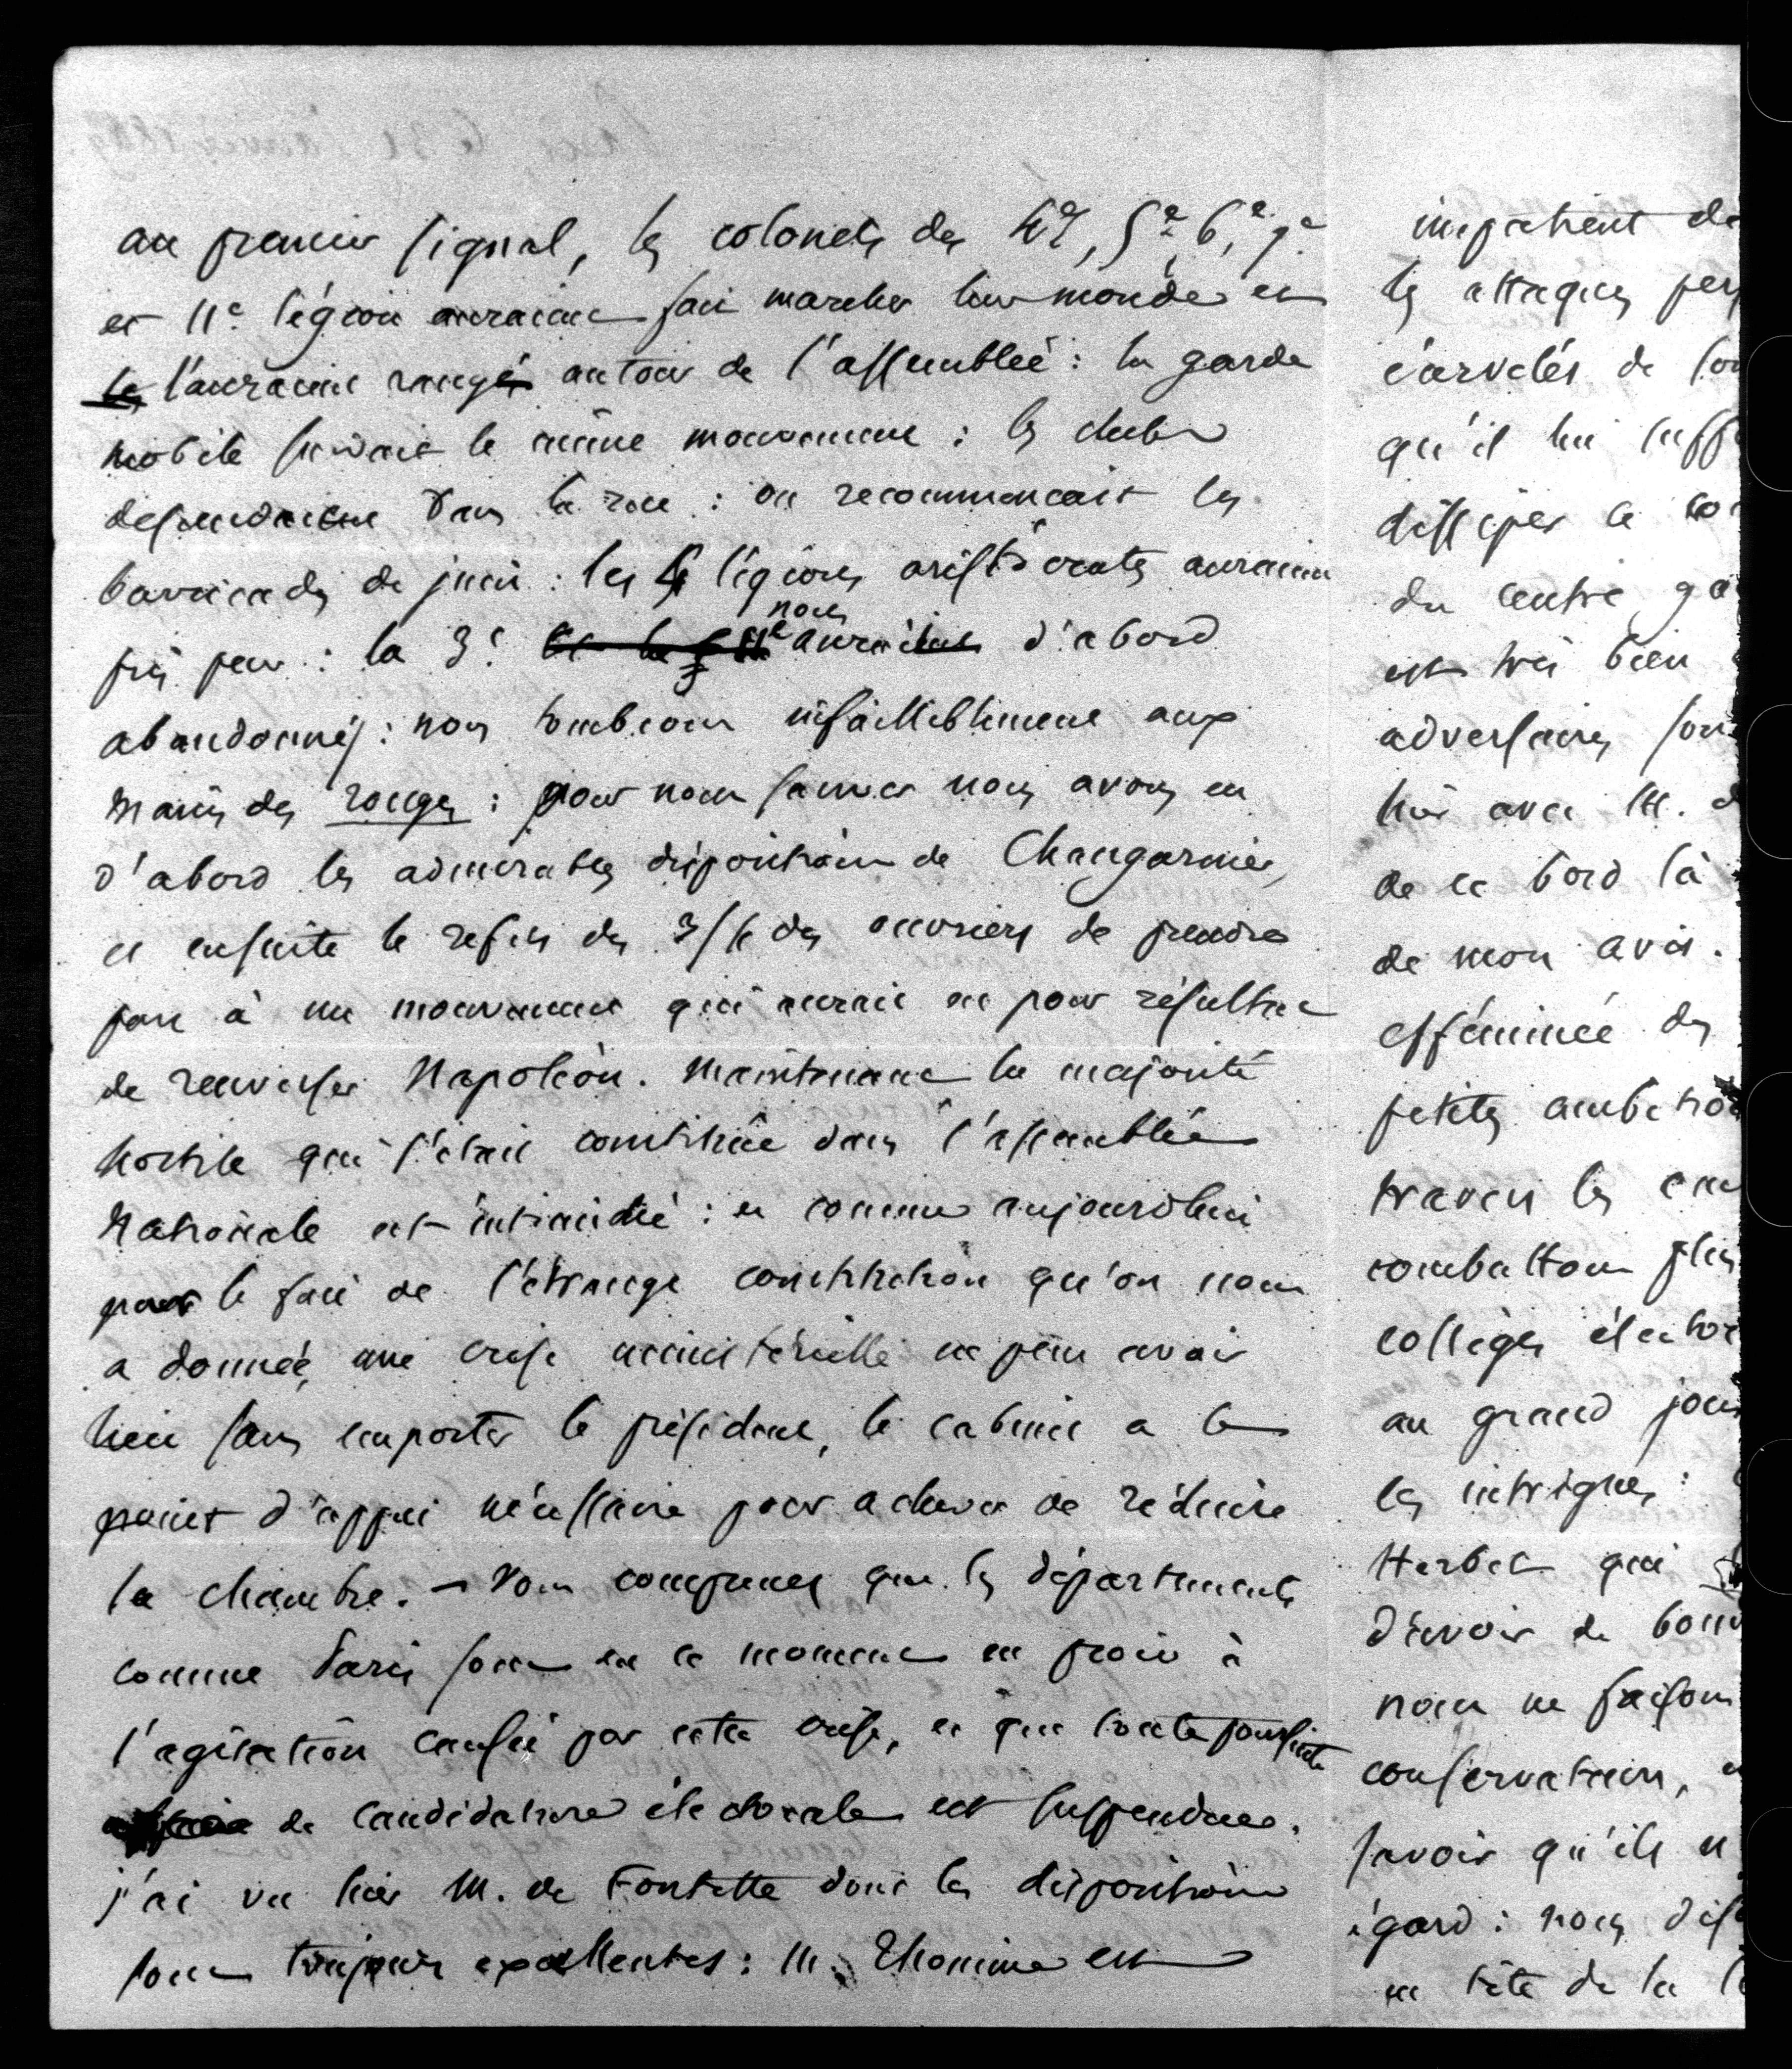 au premier signal, les colonels des 4e, 5e, 6e, 7e
et 11e légion auraient fait marcher leur monde et
les l'auraient rangé autour de l'assemblée : la garde
mobile suivait le même mouvement : les clubs
descendaient dans la rue : on recommençait les
barricades de juin : les 4 légions aristocrates auraient
pris peur : la 3e nous aurait d'abord
abandonnés : nous tombions infailliblement aux
mains des rouges : pour nous sauver nous avons eu
d'abord les admirables dispositions de Changarnier,
et ensuite le refus des 3/4 des ouvriers de prendre
part à un mouvement qui aurait eu pour résultat
de renverser Napoléon. Maintenant la majorité
hostile qui s'était constituée dans l'assemblée
Nationale est intimidée : et comme aujourd'hui
par le fait de l'étrange constitution qu'on nous
a donnée, une crise ministérielle ne peut avoir
lieu sans emporter le président, le cabinet a le
point d'appui nécessaire pour achever de réduire
la chambre. – Vous comprenez que les départements
comme Paris sont en ce moment en proie à
l'agitation causée par cette crise, et que toute poursuite
de candidature électorale est suspendue.
j'ai vu hier M. de Fontette dont les dispositions
sont toujours excellentes : M. Thomine est
impatient de
les attaques
de
qu'il lui
dissiper le
du centre
est très bien
adversaires
hier avec M.
de ce bord là
de mon avis.
efféminée des
petites
travers les
combattons
collèges
au grand jour
les intrigues :
Herbet qui
d'avoir de
nous ne faisons
conservateurs,
savoir qu'ils
égard : nous
en tête de la